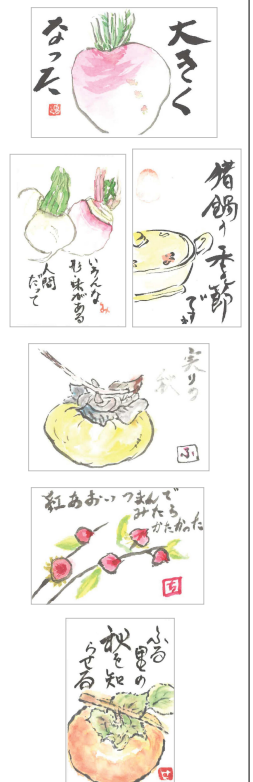 大きく
なった
いろんな
形・味がある
人間
だって
み
猪鍋の季節
です
実りの
秋
ふ
紅あおい つまんで
みたら
かたかった
ふる
里の
秋を知
らせる
せ